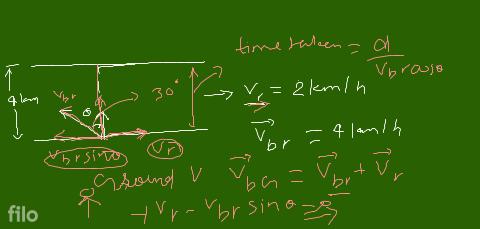 time taken = d / Vbr cosθ
4 km
Vbr
θ
30°
→ Vr = 2 km/h
Vbr = 4 km/h
Vbr sinθ
Vr
Ground V VbG = Vbr + Vr
+ Vr - Vbr sinθ =
filo